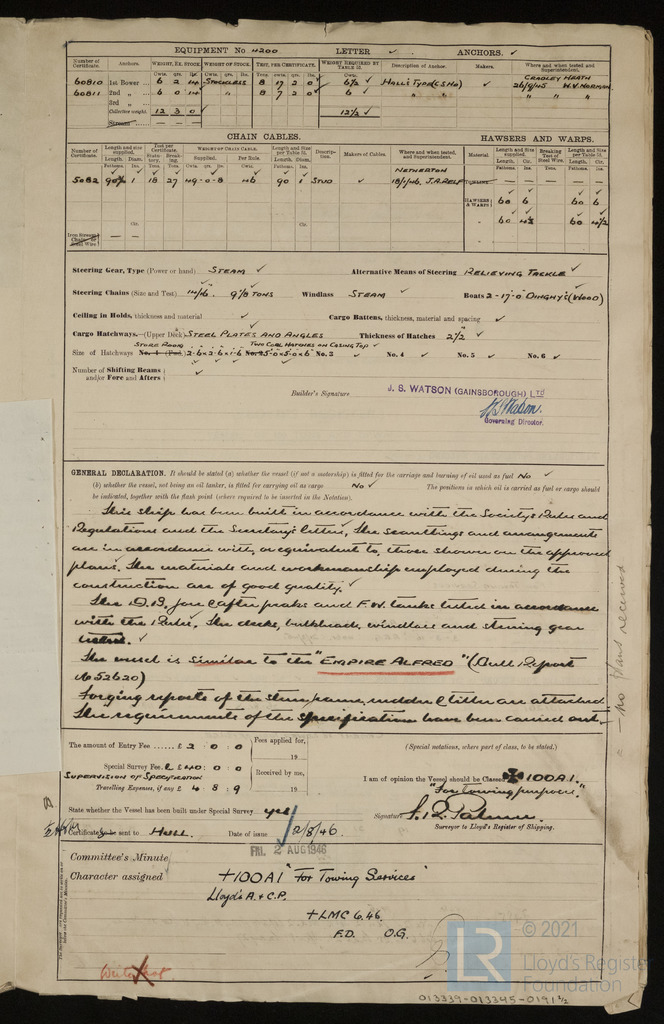 EQUIPMENT No 4200 LETTER ✓ ANCHORS. ✓
Number of Certificate. Anchors. WEIGHT, EX. STOCK. WEIGHT OF STOCK. TEST, PER CERTIFICATE. WEIGHT REQUIRED BY TABLE 31. Description of Anchor. Makers. Where and when tested and Superintendent.
Cwts. qrs. lbs. Cwts. qrs. lbs. Tons. cwts. qrs. lbs. Cwts. CRADLEY HEATH
60810 1st Bower 6 2 14 STOCKLESS 8 17 2 0 6½ ✓ HALL'S TYPE (C.S. HD) ✓ W.V. NORMAN.
60811 2nd „ 6 0 14 „ 8 7 2 0 6 ✓ „ „ ✓ „ „ „
3rd „
Collective weight. 12 3 0 12½ ✓
Stream
CHAIN CABLES. HAWSERS AND WARPS.
Number of Certificate. Length and size supplied. Test per Certificate. WEIGHT OF CHAIN CABLE. Length and Size per Table 31. Description. Makers of Cables. Where and when tested, and Superintendent. Material. Length and Size supplied. Breaking Test of Steel Wire. Length and Size per Table 31.
Length. Diam. Statutory. Breaking. Supplied. Per Rule. Length. Diam. Length. Cir. Length. Cir.
Fathoms. Ins. Tons. Tons. Cwts. qrs. lbs. Cwts. Fathoms. Ins. NETHERTON Fathoms. Ins. Tons. Fathoms. Ins.
5082 90 1 18 27 49-0-8 46 90 1 STUD ✓ 18/1/46, J.A. RELF TOWLINE
HAWSERS & WARPS 60 6 60 6
„ 60 4½ 60 4½
Iron Stream Chain or Steel Wire
Steering Gear, Type (Power or hand) STEAM ✓ Alternative Means of Steering RELIEVING TACKLE ✓
Steering Chains (Size and Test) 9⅞ TONS Windlass STEAM ✓ Boats 2-17-0 DINGHY'S (WOOD)
Ceiling in Holds, thickness and material ✓ Cargo Battens, thickness, material and spacing ✓
Cargo Hatchways.—(Upper Deck) STEEL PLATES AND ANGLES Thickness of Hatches 2½ ✓
STORE ROOM TWO COAL HATCHES ON CASING TOP ✓
Size of Hatchways No. 1 (Fwd.) 2-6 x 2-6 x 1-6 No. 2 5-0 x 5-0 x 6 No. 3 ✓ No. 4 ✓ No. 5 ✓ No. 6 ✓
Number of Shifting Beams and/or Fore and Afters ✓
Builder's Signature J. S. WATSON (GAINSBOROUGH) LTD
J. S. Watson.
Governing Director.
GENERAL DECLARATION. It should be stated (a) whether the vessel (if not a motorship) is fitted for the carriage and burning of oil used as fuel No ✓
(b) whether the vessel, not being an oil tanker, is fitted for carrying oil as cargo No ✓ The positions in which oil is carried as fuel or cargo should
be indicated, together with the flash point (where required to be inserted in the Notation).
This ship has been built in accordance with the Society's Rules and
Regulations and the Secretary's letters, The scantlings and arrangements
are in accordance with, or equivalent to, those shown on the approved
plans. The materials and workmanship employed during the
construction are of good quality. ✓
The D.B. fore & after peaks and F.W. tanks tested in accordance
with the Rules. The decks, bulkheads, windlass and steering gear
tested. ✓
The vessel is similar to the "EMPIRE ALFRED" (Hull Report
No 52620)
Forging reports of the stern frame, rudder & tiller are attached
The requirements of the specification have been carried out.
- no plans received
The amount of Entry Fee £ 2 : 0 : 0 Fees applied for,
19
Special Survey Fee £ 40 : 0 : 0
SUPERVISION OF SPECIFICATION Received by me,
Travelling Expenses, if any £ 4 : 8 : 9 19
(Special notations, where part of class, to be stated.)
I am of opinion the Vessel should be Classed ✠ 100A1.
"For towing purposes."
State whether the Vessel has been built under Special Survey yes
Signature
Surveyor to Lloyd's Register of Shipping.
Certificate to be sent to HULL Date of issue 2/8/46.
FRI. 2 AUG 1946
Committee's Minute
Character assigned +100A1 "For Towing Services"
Lloyd's A. & C.P.
+LMC 6.46.
F.D. O.G.
© 2021
LR Lloyd's Register Foundation
013339-013345-0191½